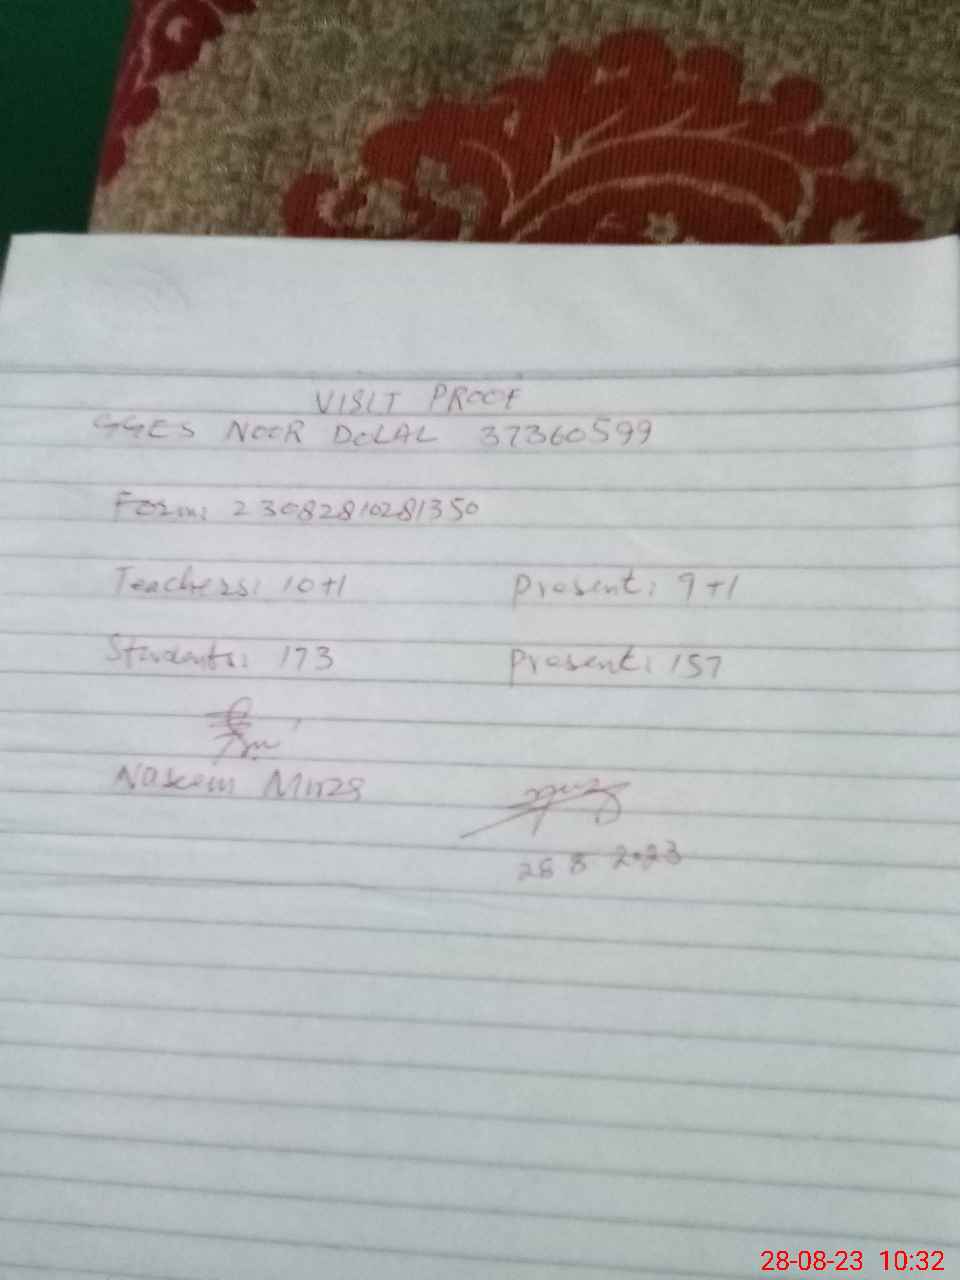 VISIT PROOF
GGES NOOR DOLAL 37360599
Form: 23082810281350
Teachers: 10+1 Present: 9+1
Students: 173 Present: 157
Naseem Mirza
28 8 2023
28-08-23 10:32